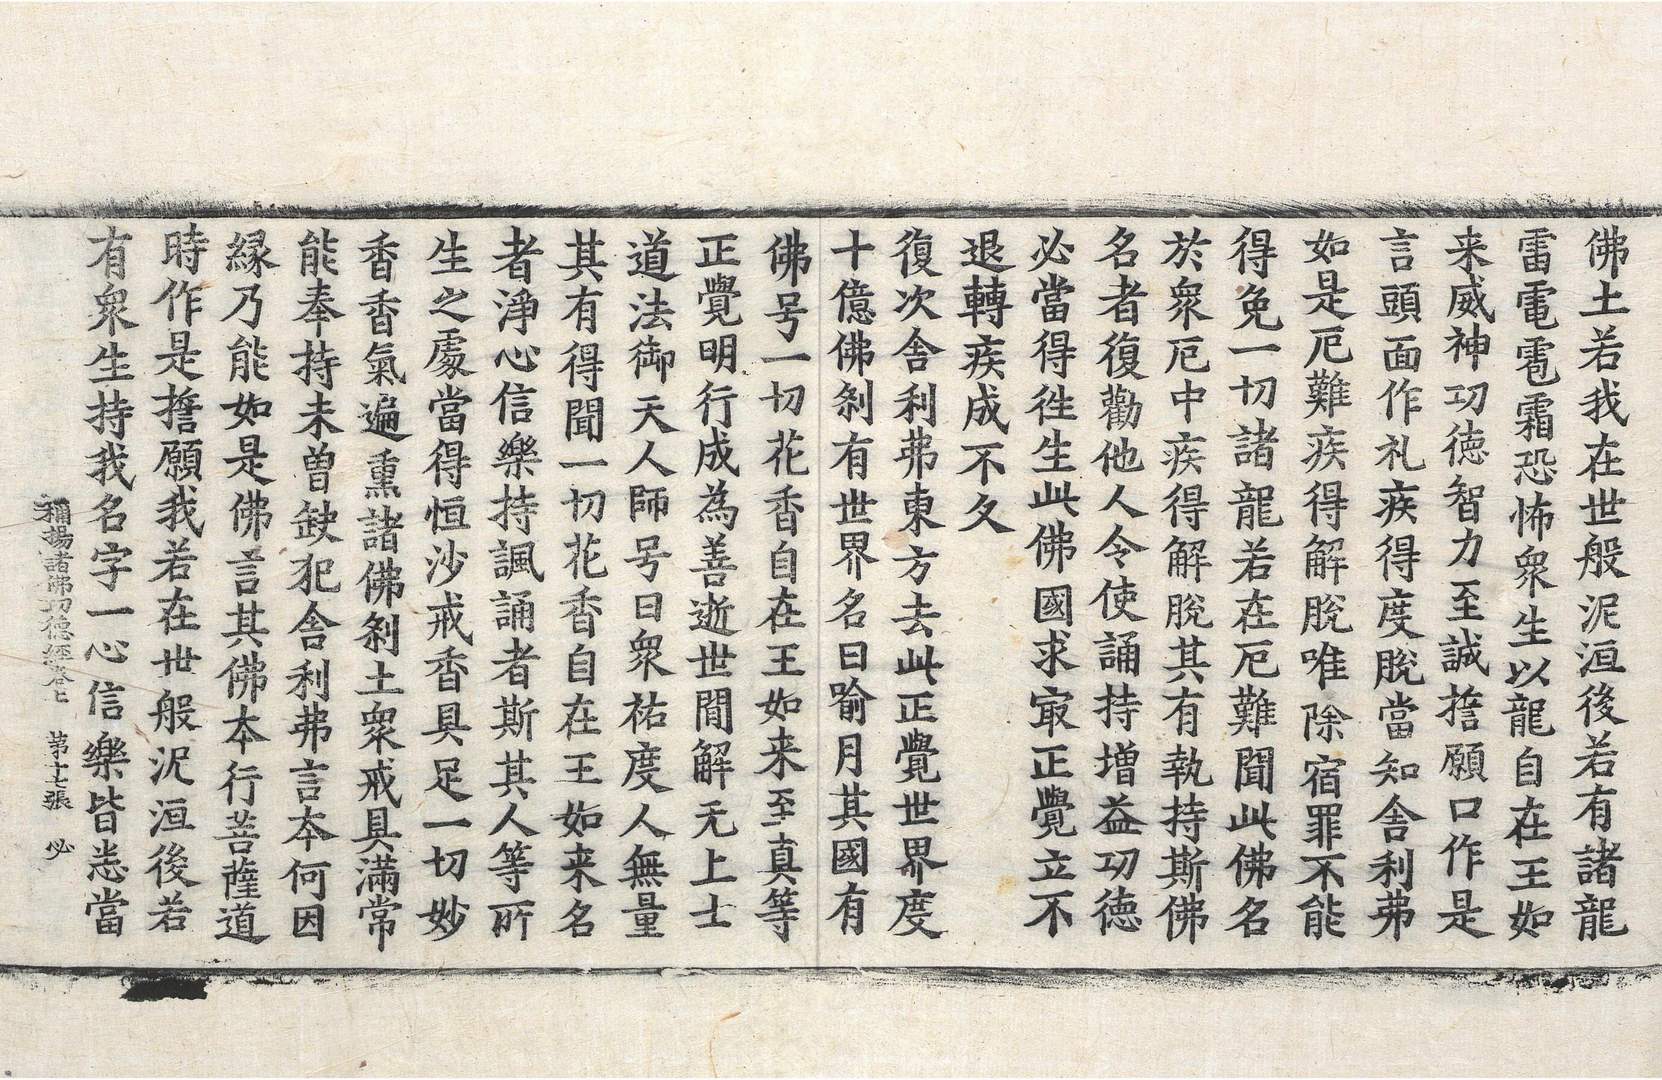 佛土若我在世般泥洹後若有諸龍
雷電雹霜恐怖衆生以龍自在王如
来威神功德智力至誠擔願口作是
言頭面作礼疾得度脫當知舍利弗
如是厄難疾得解脫唯除宿罪不能
得免一切諸龍若在厄難聞此佛名
於衆厄中疾得解脫其有執持斯佛
名者復勸他人令使誦持增益功德
必當得徃生此佛國求㝡正覺立不
退轉疾成不久
復次舍利弗東方去此正覺世界度
十億佛剎有世界名曰喻月其國有
佛号一切花香自在王如来至真等
正覺明行成為善逝世間解无上士
道法御天人師号曰衆祐度人無量
其有得聞一切花香自在王如来名
者淨心信樂持諷誦者斯其人等所
生之處當得恒沙戒香具足一切妙
香香氣遍熏諸佛剎土衆戒具滿常
能奉持未曾缺犯舍利弗言本何因
緣乃能如是佛言其佛本行菩薩道
時作是擔願我若在世般泥洹後若
有衆生持我名字一心信樂皆悉當
稱揚諸佛功德經卷七 第十七張 必